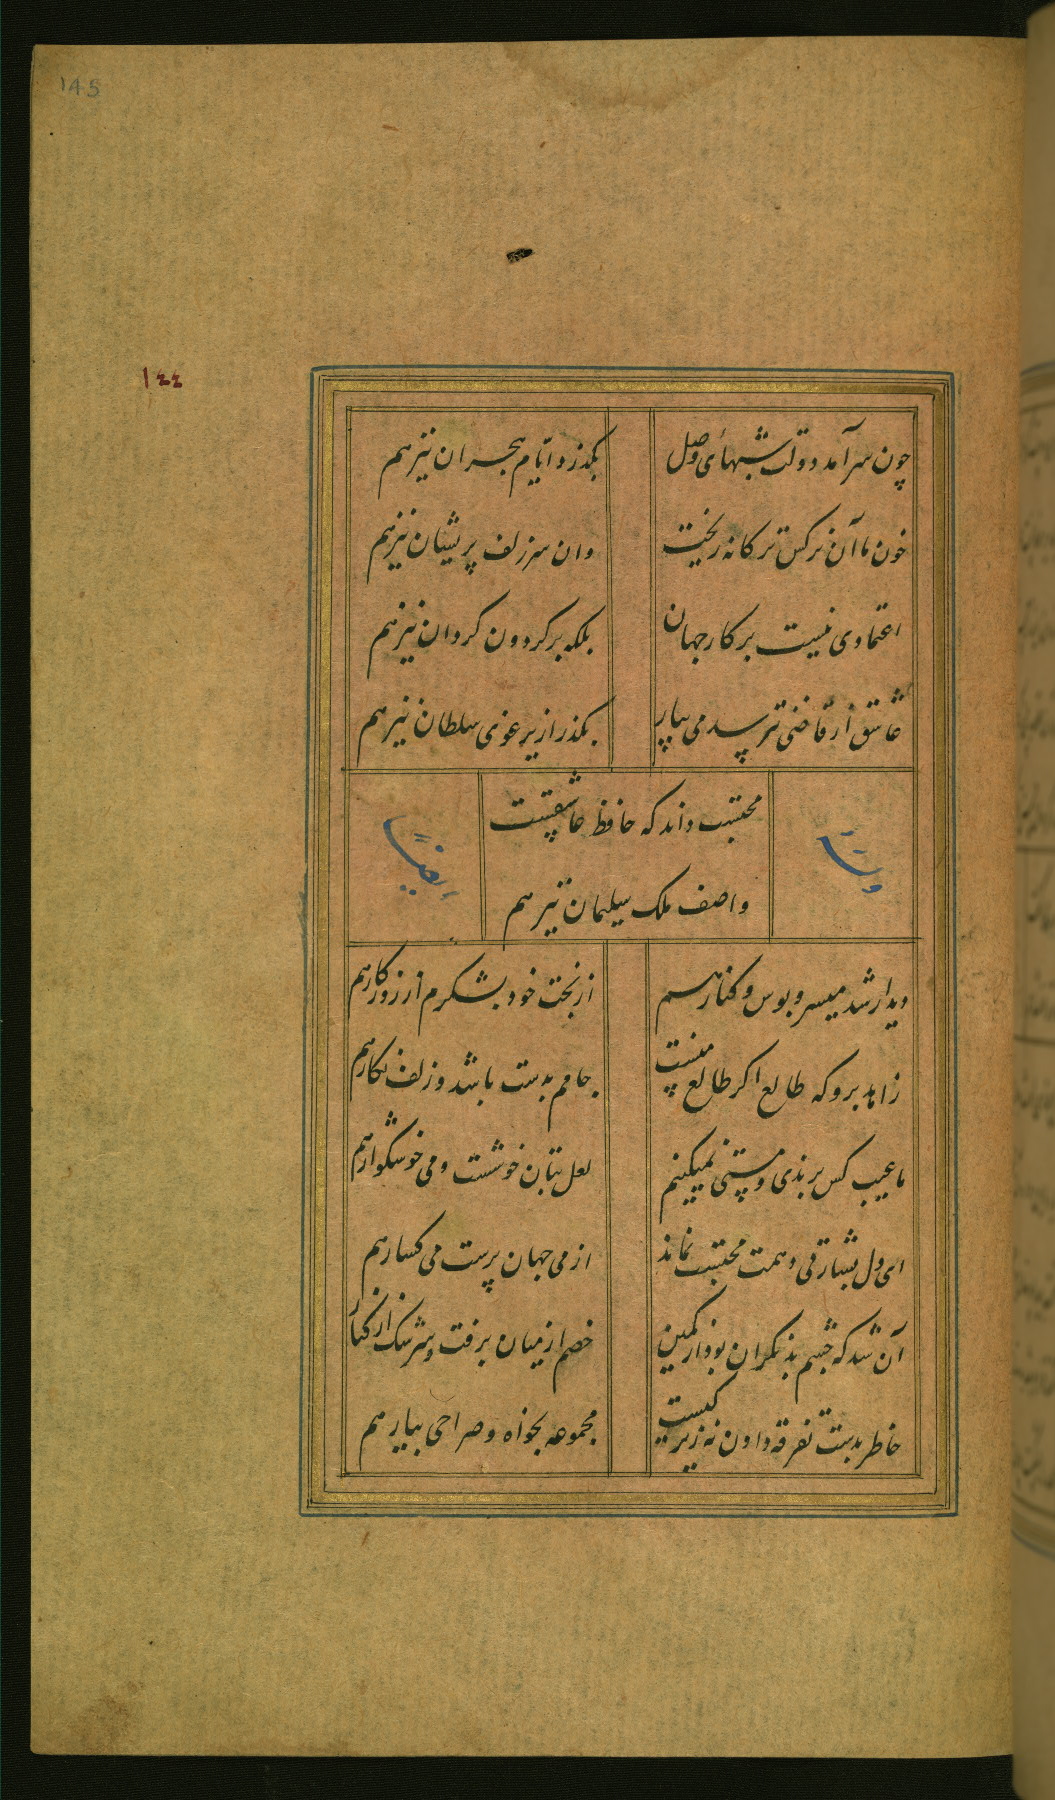 145
١٤٤
چون سرآمد دولت شبهای وصل
بکذرد ایّام هجران نیز هم
خون ما آن نرکس ترکانه ریخت
وان سر زلف پریشان نیز هم
اعتمادی نیست بر کار جهان
بلکه بر کردون کردان نیز هم
عاشق از قاضی ترسد می بیار
بکذر از یرغوی سلطان نیز هم
محتسب داند که حافظ عاشقست
واصف ملک سلیمان نیز هم
وله
ایضاً
دیدار شد میسر و بوس و کنار هم
از بخت خود بشکرم از روزکار هم
زاهد برو که طالع اکر طالع منست
جامم بدست باشد و زلف نکار هم
ما عیب کس برندی و مستی نمیکنیم
لعل بتان خوشست و می خوشکوار هم
ای دل بشارتی دهمت محتسب نماند
از می جهان پرست می کسار هم
آن شد که چشم بد نکران بود از کمین
خصم از میان برفت و سرشک از کنار
خاطر بدست تفرقه دادن نه زیرکیست
مجموعه بخواه و صراحی بیار هم